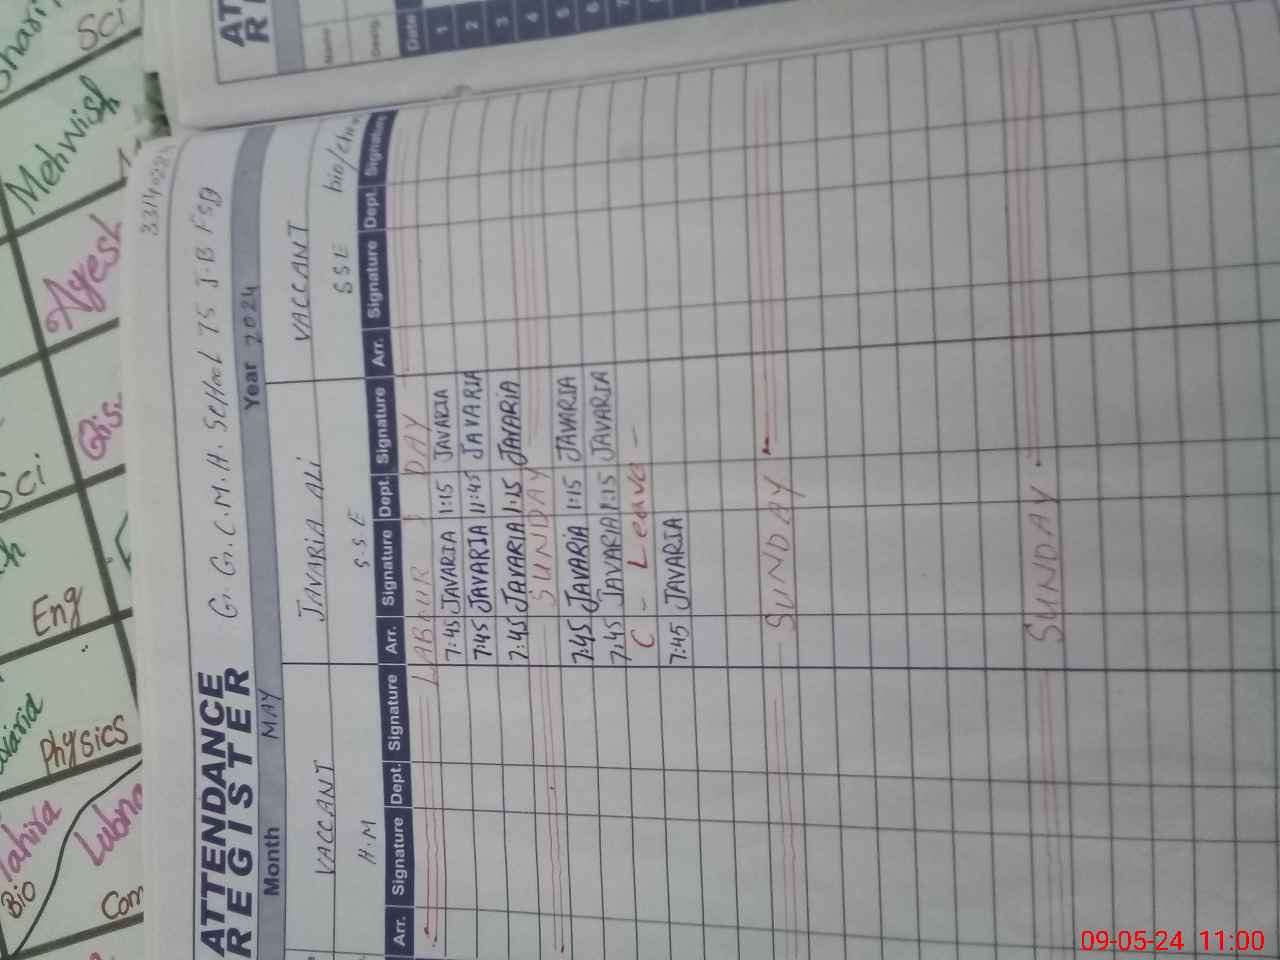 33140221
ATTENDANCE
REGISTER
G. G. C. M. H. School 75 J.B FSD
Month MAY Year 2024
VACCANT JAVARIA ALi VACCANT
H.M S.S.E SSE bio/
Arr. Signature Dept. Signature Arr. Signature Dept. Signature Arr. Signature Dept. Signature
LABOUR DAY
7:45 JAVARIA 1:15 JAVARIA
7:45 JAVARIA 11:45 JAVARIA
7:45 JAVARIA 1:15 JAVARIA
SUNDAY
7:45 JAVARIA 1:15 JAVARIA
7:45 JAVARIA 1:15 JAVARIA
C - Leave -
7:45 JAVARIA
SUNDAY
SUNDAY
AT
R
Name
Desig.
Date 1 2 3 4 5 6 7
Sci
Mehwish
Ayesh
Sci
Eng
Physics
Tahira
Bio
Lubna
Com
09-05-24 11:00